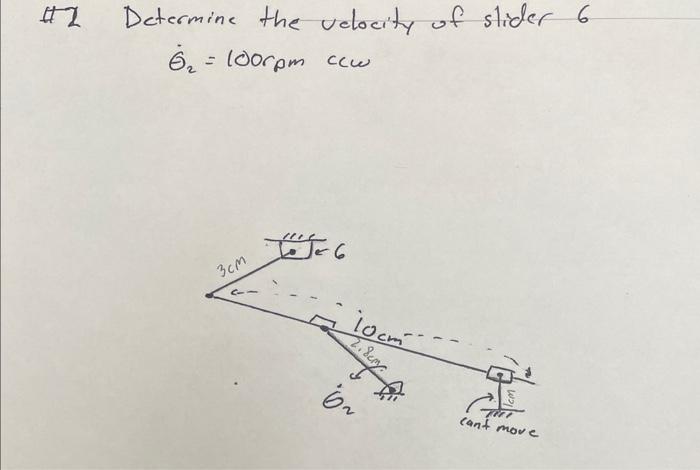 #2 Determine the velocity of slider 6
θ̇₂ = 100rpm ccw
6
3cm
10cm
2.8cm
θ̇₂
1cm
cant move